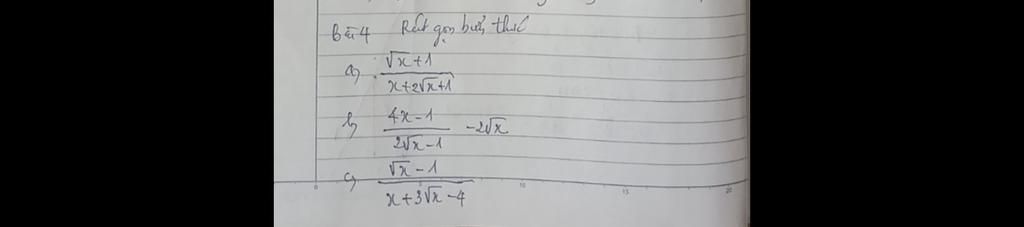 Bài 4 Rút gọn biểu thức
a) (√x + 1)/(x + 2√x + 1)
b) (4x - 1)/(2√x - 1) - 2√x
c) (√x - 1)/(x + 3√x - 4)
0 10 15 20